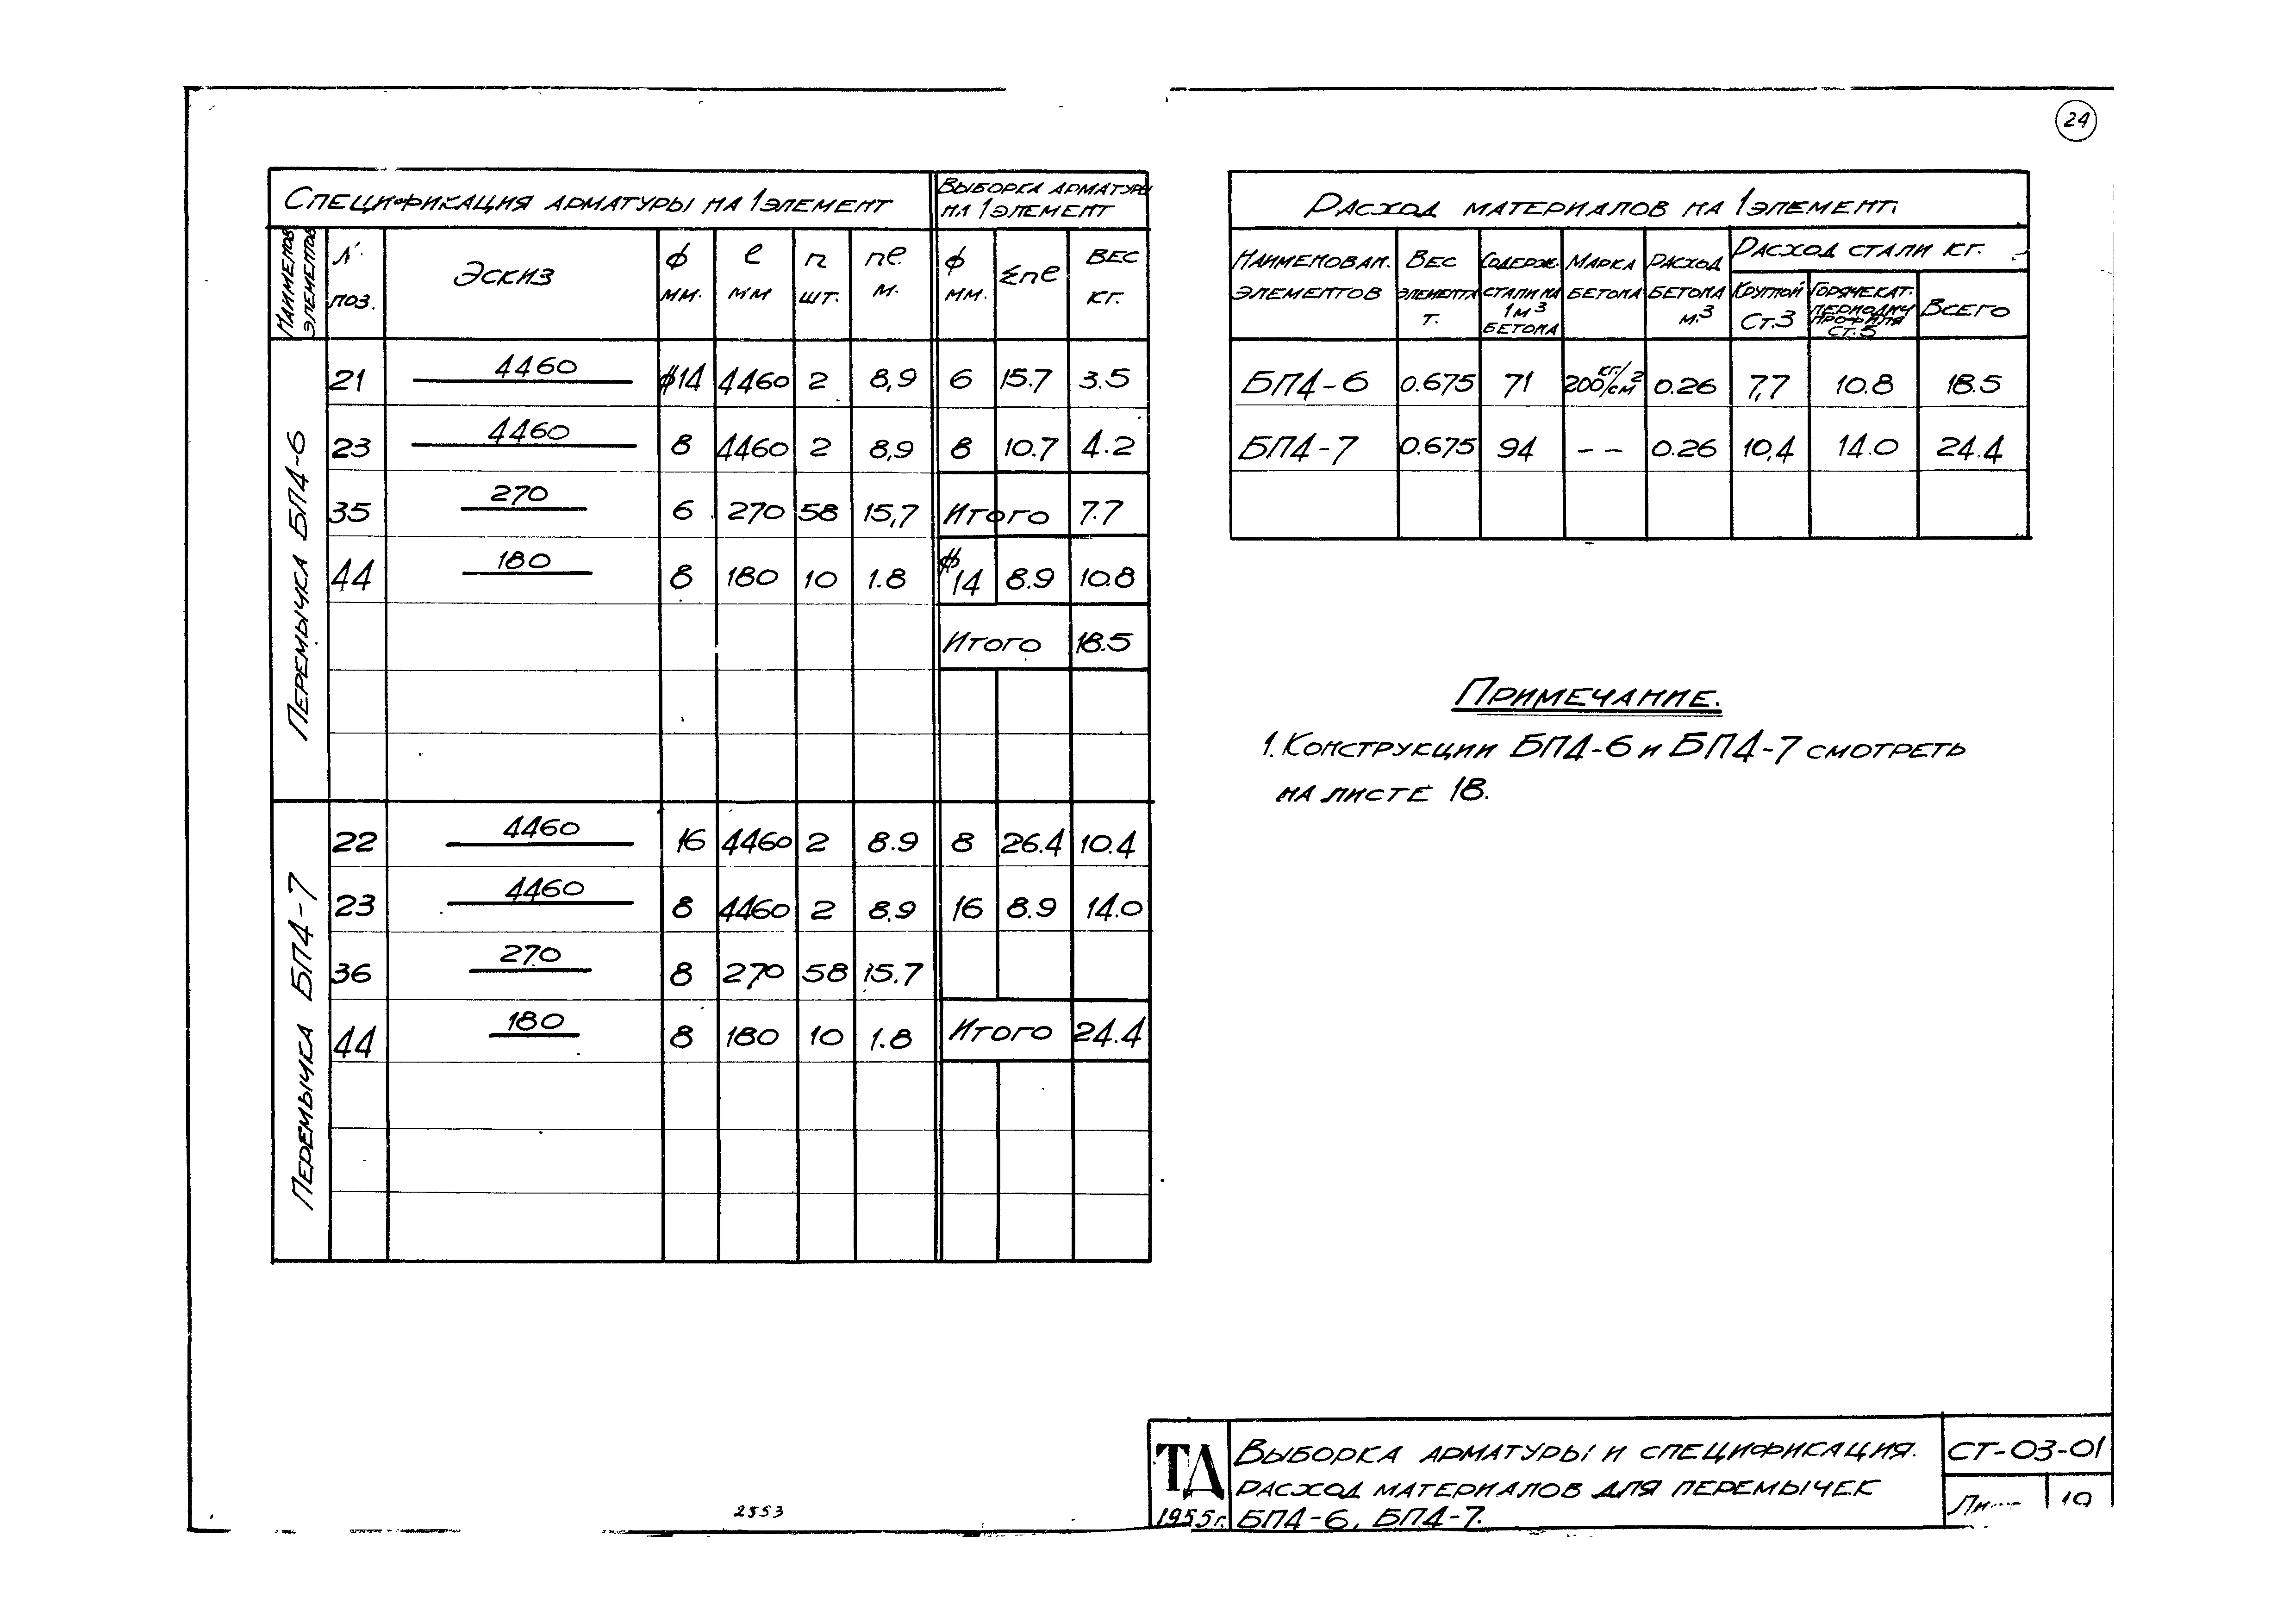 24
Спецификация арматуры на 1 элемент
Выборка арматуры
на 1 элемент
Наименов элементов | № поз. | Эскиз | ф мм. | ℓ мм | п шт. | пℓ м. | ф мм. | Σпℓ | Вес кг.
Перемычка БП4-6
21 | 4460 | ф14 | 4460 | 2 | 8,9 | 6 | 15.7 | 3.5
23 | 4460 | 8 | 4460 | 2 | 8,9 | 8 | 10.7 | 4.2
35 | 270 | 6 | 270 | 58 | 15,7 | Итого | 7.7
44 | 180 | 8 | 180 | 10 | 1.8 | ф14 | 8.9 | 10.8
Итого | 18.5
Перемычка БП4-7
22 | 4460 | 16 | 4460 | 2 | 8.9 | 8 | 26.4 | 10.4
23 | 4460 | 8 | 4460 | 2 | 8,9 | 16 | 8.9 | 14.0
36 | 270 | 8 | 270 | 58 | 15.7
44 | 180 | 8 | 180 | 10 | 1.8 | Итого | 24.4
Расход материалов на 1 элемент.
Наименован. элементов | Вес элемента т. | Содерж. стали на 1м³ бетона | Марка бетона | Расход бетона м.³ | Расход стали кг.
Круглой Ст.3 | Горячекат. периодич профиля ст.5 | Всего
БП4-6 | 0.675 | 71 | 200 кг/см² | 0.26 | 7,7 | 10.8 | 18.5
БП4-7 | 0.675 | 94 | – – | 0.26 | 10,4 | 14.0 | 24.4
Примечание.
1. Конструкции БП4-6 и БП4-7 смотреть
на листе 18.
ТД
1955г.
Выборка арматуры и спецификация.
расход материалов для перемычек
БП4-6, БП4-7.
СТ-03-01
19
2553